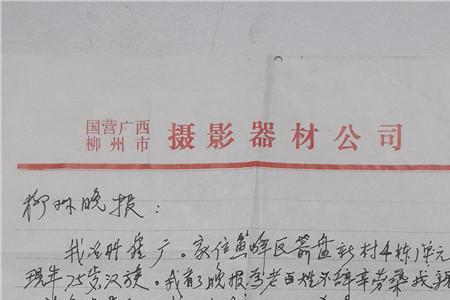 国营广西
柳州市
摄影器材公司
柳州晚报：
我
家住鱼峰区箭盘新村4栋1单元
现年75岁汉族。我看了晚报为老百姓不辞辛劳